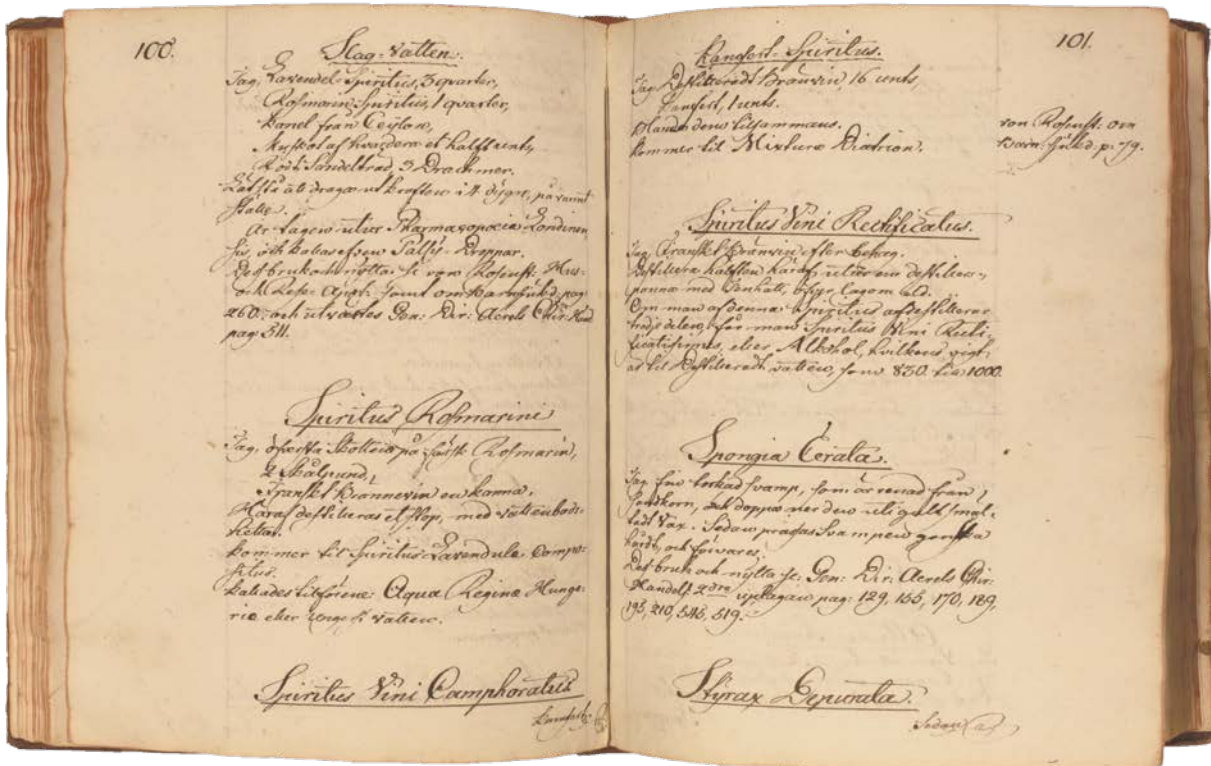 100.
Slag-Vatten.
Tag, Lavendel-Spiritus, 3 quarter,
Rosmarin Spiritus, 1 quarter,
Kanel från Ceylon,
Muskot af hvardera et halft unts,
Rödt Sandelträd, 3 Drachmer.
Låt stå at draga ut kraften i 4 dygn, på varmt
ställe.
Är tagen utur Pharmacopoeia Londinen
sis, och kallas efven Palsy-Droppar.
Dess bruk och nytta se von Rosenst: Hus-
och Rese-Apot: samt om Barnsjukd. pag:
260. och utvärtes Gen: Dir: Acrels Chir: Händ
pag: 511.
Spiritus Rosmarini
Tag, öfversta Skotten på färsk Rosmarin,
2 Skålpund,
Franskt Brännevin en kanna.
Häraf destilleras et stop, med vatten bad-
hetta.
Kommer til Spiritus Lavendulæ Compo-
situs.
Kallades tilförene: Aqua Reginæ Hunga-
riæ eller Ungerskt Vatten.
Spiritus Vini Camphoratus
Camfert-
101.
Kamfert-Spiritus.
Tag, Destilleradt Bränvin, 16 unts,
Camfert, 1 unts.
Blanda dem tilsammans.
Kommer til Mixtura Diatrion.
von Rosenst: om
Barn-Sjukd. p: 79.
Spiritus Vini Rectificatus.
Tag, Franskt Bränvin efter behag.
Destillera hälften häraf, utur en destiller-
panna med Tenhatt, öfver lagom eld.
Om man af denna Spiritus afdestillerar
tredje delen, får man Spiritus Vini Recti-
ficatissimus, eller Alkohol, hvilkens vigt,
är til Destilleradt vatten, som 830 til 1000.
Spongia Cerata.
Tag fin torkad svamp, som är renad från
Sandkorn, och doppa ner den uti gult smäl-
tadt Vax. Sedan prässas Svampen ganska
hårdt, och förvares.
Dess bruk och nytta se: Gen: Dir: Acrels Chir:
Handels: 2dra uplagan pag: 129, 155, 170, 189,
195, 210, 515, 519.
Styrax Depurata.
Sedan